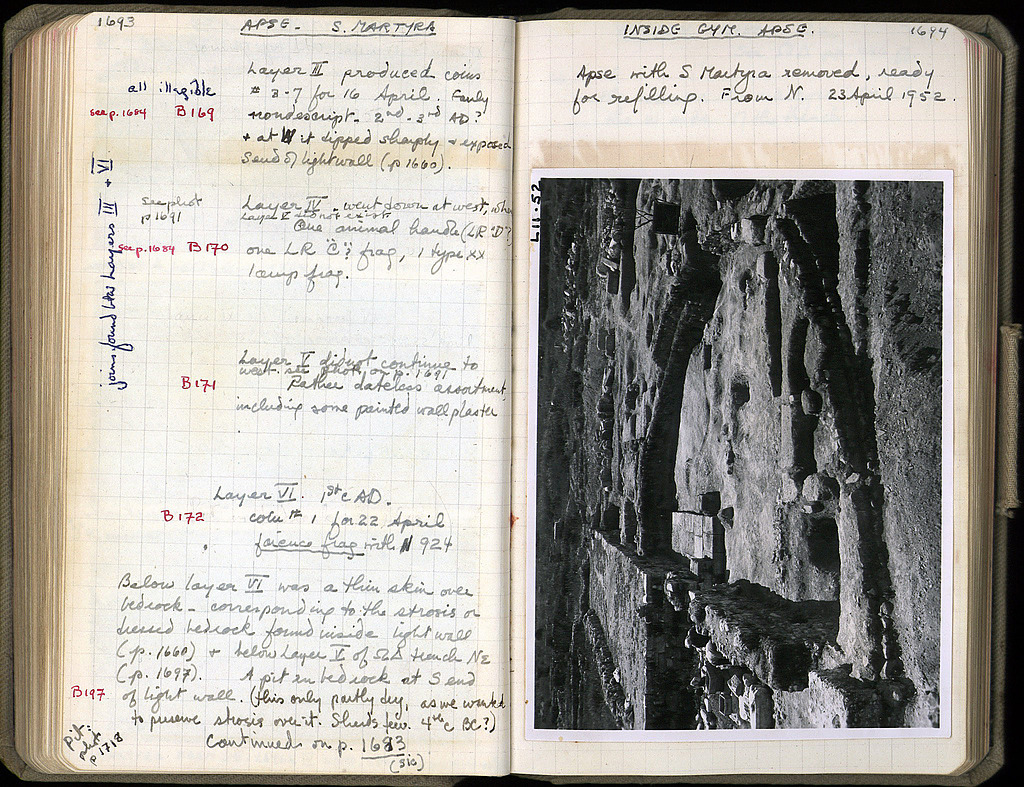 1693
APSE - S. MARTYRA
Layer III produced coins
all illegible
# 3-7 for 16 April. Fairly
see p. 1684 B169
nondescript. 2nd - 3rd AD?
+ at W it dipped sharply + exposed
S end of light wall (p 1660).
joins found btw Layers III + VI
see phot
p 1691
Layer IV went down at west, when
Layer V did not exist
One animal handle (LR "D"?
see p. 1684 B170
one LR "C"? frag, 1 type XX
lamp frag.
Layer V did not continue to
west see photo, on p. 1691
B171
Rather dateless assortment
including some painted wall plaster
Layer VI. 1st c AD.
B172
coin # 1 for 22 April
faience frag with N 924
Below Layer VI was a thin skin over
bedrock - corresponding to the strosis or
dressed bedrock found inside light wall
(p. 1660) + below Layer V of trench NE
(p. 1697). A pit in bedrock at S end
B197
of light wall. (this only partly dug, as we wanted
to preserve strosis over it. Sherds few. 4th c BC?)
Pit.
phot
p 1718
Continued on p. 1683
(sic)
INSIDE GYM. APSE.
1694
Apse with S Martyra removed, ready
for refilling. From N. 23 April 1952.
L11.52